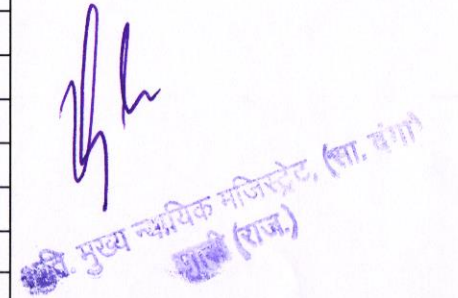 अति. मुख्य न्यायिक मजिस्ट्रेट, (सा. दंगा)
(राज.)